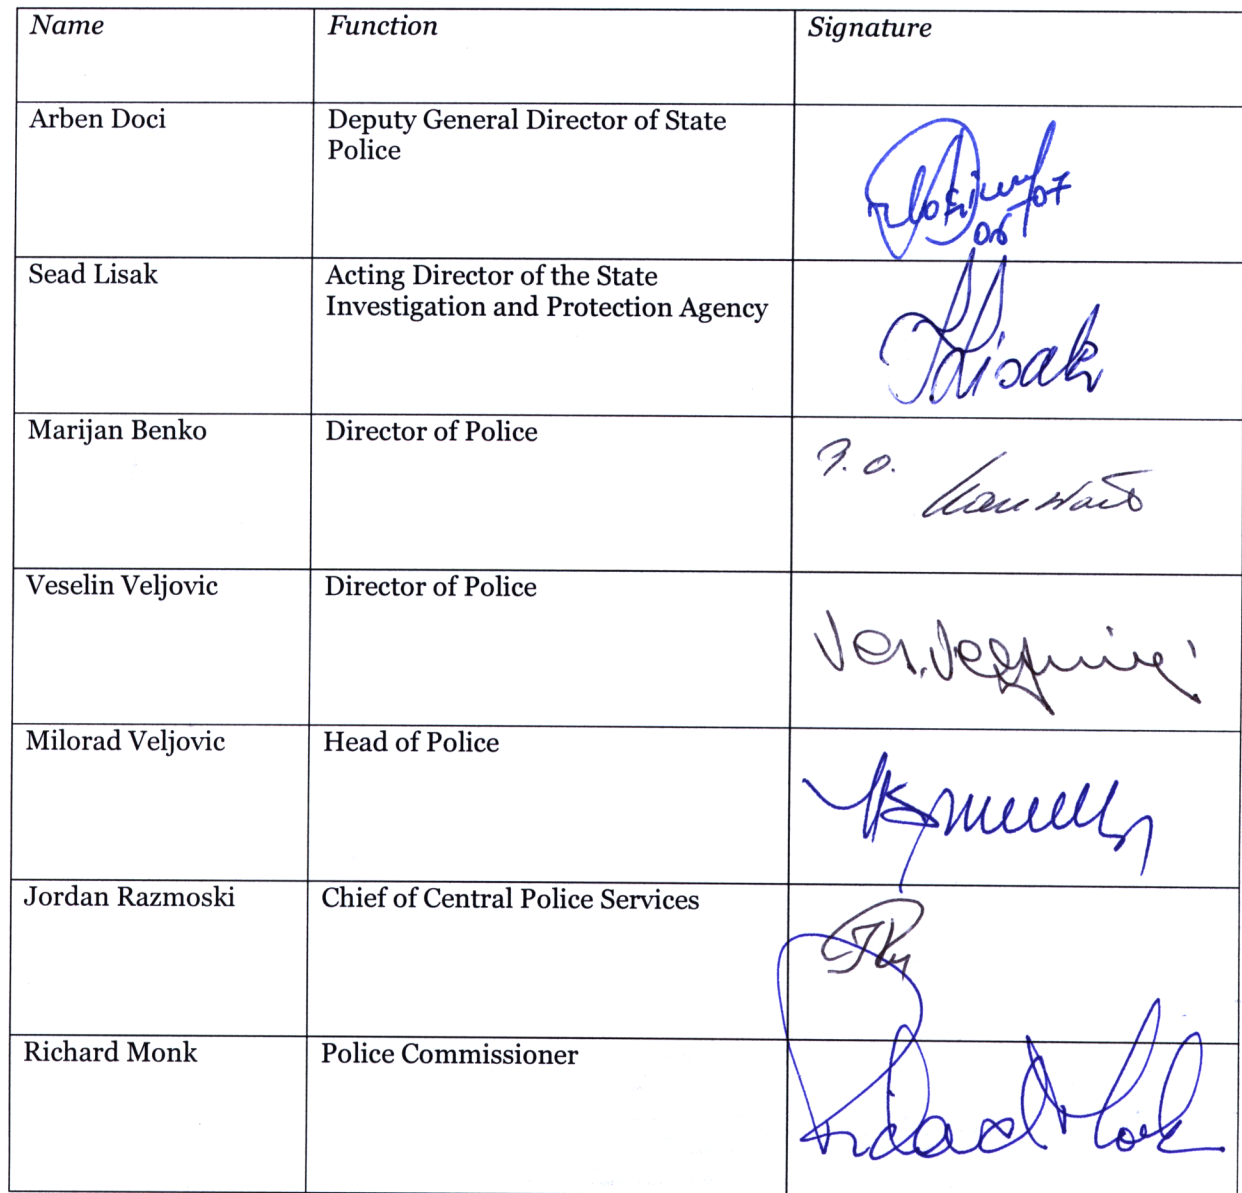 Name Function Signature
Arben Doci Deputy General Director of State
Police
Sead Lisak Acting Director of the State
Investigation and Protection Agency
Lisak
Marijan Benko Director of Police
Veselin Veljovic Director of Police
Milorad Veljovic Head of Police
Jordan Razmoski Chief of Central Police Services
Richard Monk Police Commissioner
Richard Monk